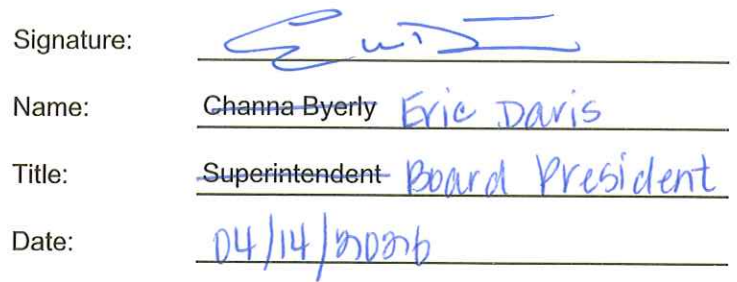 Signature:
Name: Channa Byerly Eric Davis
Title: Superintendent Board President
Date: 04/14/2026